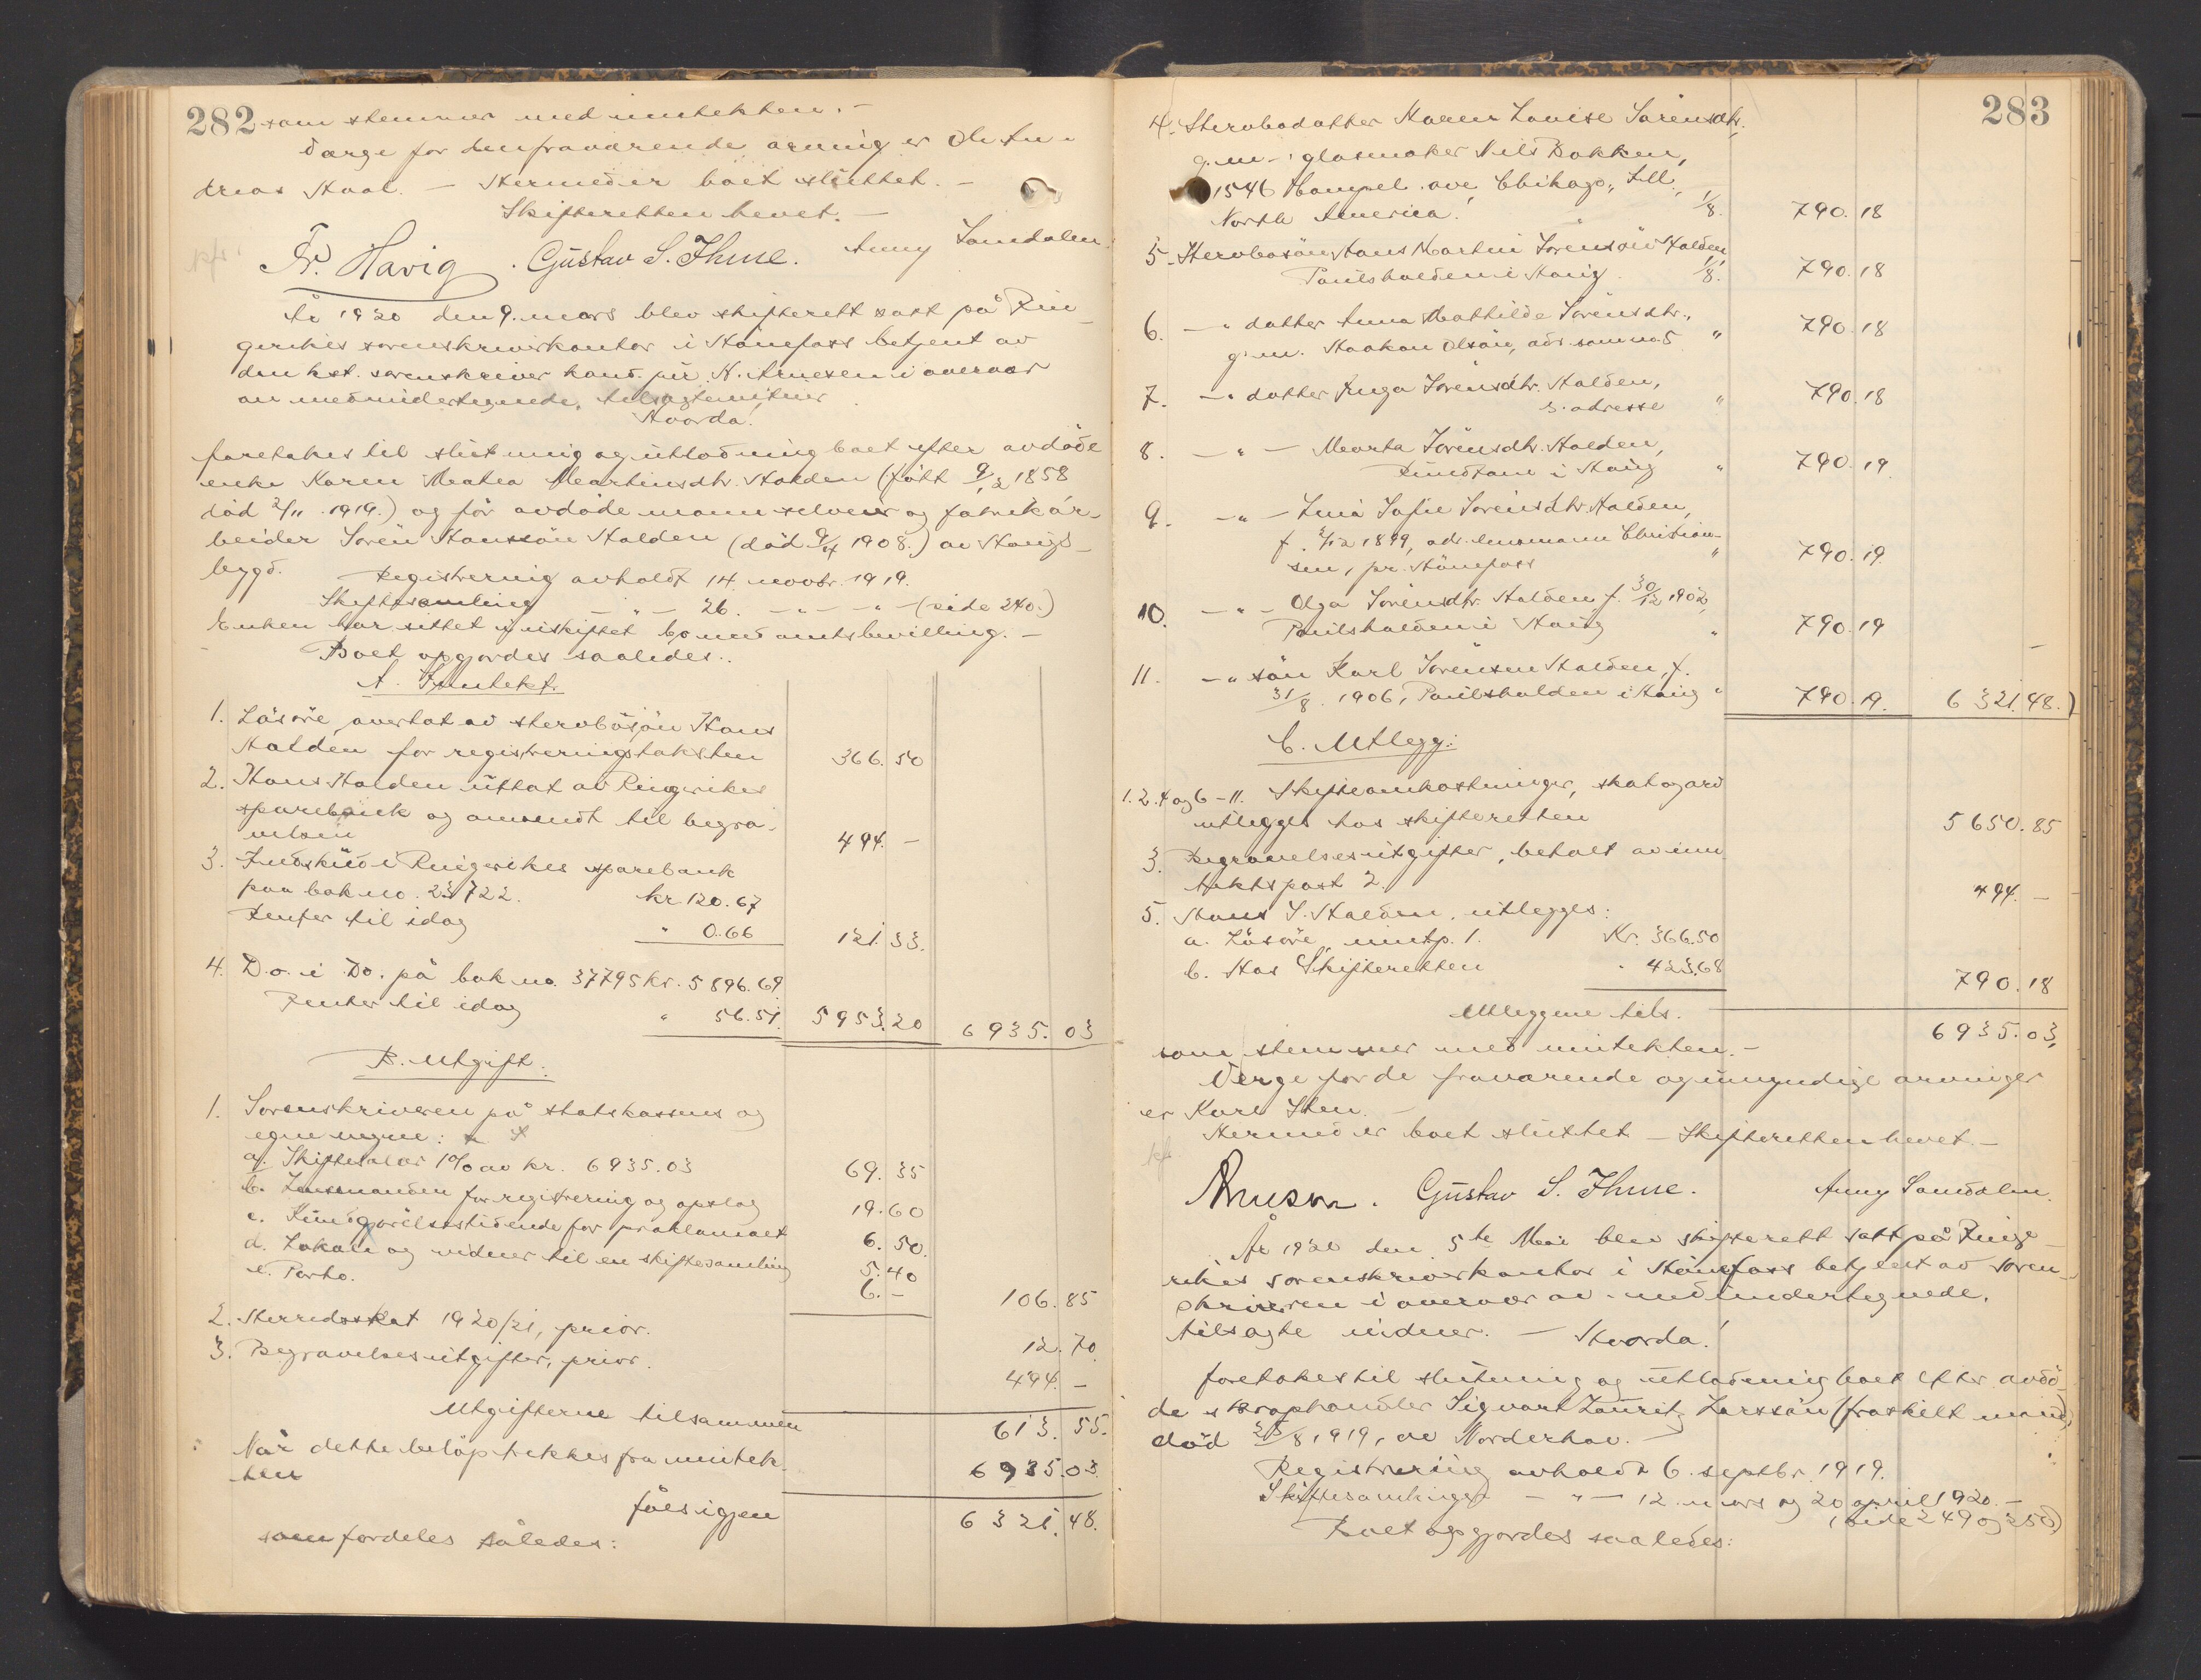 282
som stemmer med inntekten. -
Værge for den fraværende arving er Ole An-
dreas Haal. - Hermed er boet sluttet. -
Skifteretten hevet. -
Fr. Havig. Gustav S. Ihme. Anny Samdalen.
År 1920 den 9. mars blev skifterett satt på Rin-
gerikes sorenskriverkontor i Hønefoss betjent av
den kst. sorenskriver kand. jur. H. Arnesen i overvær
av medundertegnede, tilsagte vitner
Hvorda!
foretakes til slutning og utlodning boet efter avdøde
enke Karen Mathea Martinsdtr. Halden (født 9/12 1858
død 2/11 1919.) og før avdøde mann selveier og fabrikar-
beider Sören Hanssön Halden (död 9/4 1908.) av Haugs-
bygd.
Registrering avholdt 14. novbr. 1919.
Skiftesamling - " - 26. - " - - " - (side 240.)
Enken har sittet i uskiftet bo med amtsbevilling. -
Boet opgjordes saaledes:
A. Inntekt.
1. Løsøre, overtat av stervbosøn Hans
Halden for registreringstaksten 366. 50
2. Hans Halden uttat av Ringerikes
sparebank og anvendt til begra-
velsen 494. -
3. Indskud i Ringerikes sparebank
paa bok no. 23722. kr 120.67
Renter til idag " 0.66 121. 33.
4. D.o. i Do. på bok no. 37795 kr. 5896.69
Renter til idag " 56.51. 5953.20 6935.03
B. Utgift.
1. Sorenskriveren på statskassens og
egne vegne:
a. Skiftesalær 1% av kr. 6935.03 69. 35
b. Lensmanden for registrering og opslag 19.60
c. Kundgjørelsestidende for proklamaet 6. 50.
d. Lokale og vidner til en skiftesamling 5.40
e. Porto. 6. - 106. 85
2. Herredsskat 1920/21, prior. 12. 70
3. Begravelsesutgifter, prior. 494. -
Utgifterne tilsammen 613. 55.
Når dette beløp trekkes fra inntek-
ten 6935.03.
fåes igjen 6321.48.
som fordeles således:
283
4. Stervbodatter Maren Louise Sörensdtr.
g. m. glasmaker Nils Bakken,
1546 Campel ave, Chikago, Ill.,
North America. 1/8. 790. 18
5. Stervbosön Hans Martin Sörensön Halden
Paulshalden i Haug. 1/8. 790. 18
6. - " datter Anna Mathilde Sörensdtr.,
g. m. Haakon Olsön, adr. som no 5 " 790. 18
7. - " datter Inga Sörensdtr. Halden,
s. adresse " 790. 18
8. - " - Marta Sörensdtr. Halden,
Rundtom i Haug " 790. 19
9. - " - Lina Sofie Sörensdtr Halden,
f. 3/12 1899, adr. lensmann Christian-
sen, pr. Hönefoss " 790. 19
10. - " - Olga Sörensdtr. Halden, f. 30/12 1902,
Paulshalden i Haug " 790. 19
11. - " sön Karl Sörensen Halden, f.
31/8. 1906, Paulshalden i Haug " 790. 19. 6321.48.
C. Utlegg:
1. 2. 4 og 6 - 11. Skifteomkostninger, skat og arv
utlegges hos skifteretten 5650.85
3. Begravelsesutgifter, betalt av inn
tektspost 2. 494. -
5. Hans S. Halden, utlegges:
a. Løsøre, inntp. 1. Kr. 366.50
b. Hos Skifteretten " 423.68 790.18
Utleggene tils. 6935.03,
som stemmer med inntekten. -
Verge for de fraværende og umyndige arvinger
er Karl Sten. -
Hermed er boet sluttet - Skifteretten hevet. -
Arnesen. Gustav S. Ihme. Anny Samdalen.
År 1920 den 5te Mai blev skifterett satt på Ringe-
rikes sorenskriverkontor i Hønefoss betjent av soren-
skriveren i overvær av medundertegnede,
tilsagte vidner. - Hvorda!
foretakes til slutning og utlodning boet efter avdö-
de skraphandler Sigvart Lauritz Larssön (fraskilt mand)
död 23/8 1919, av Norderhov. -
Registrering avholdt 6. septbr. 1919.
Skiftesamlinger - " - 12. mars og 20 april 1920. -
(side 249 og 250)
Boet opgjordes saaledes: